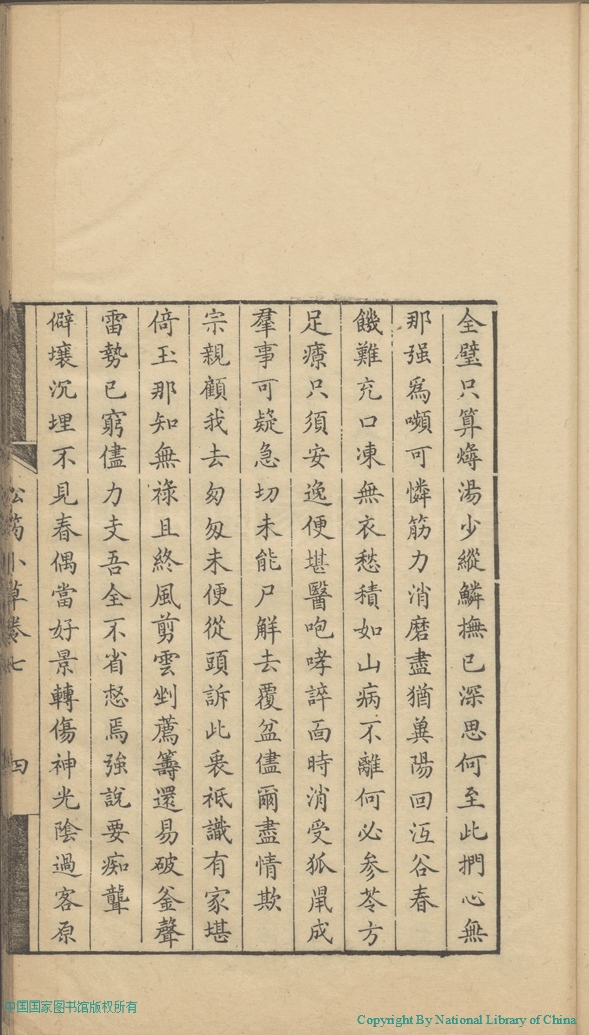 全璧只算燖湯少縱鱗撫已深思何至此捫心無
那强爲嚬可憐筋力消磨盡猶冀陽回冱谷春
饑難充口凍無衣愁積如山病不離何必參苓方
足療只須安逸便堪醫咆哮誶面時消受狐鼠成
羣事可疑急切未能尸解去覆盆儘爾盡情欺
宗親顧我去匆匆未便從頭訴此衷祇識有家堪
倚玉那知無祿且終風剪雲剉薦籌還易破釜聲
雷勢已窮儘力支吾全不省惄焉強說要痴聾
僻壤沉埋不見春偶當好景轉傷神光陰過客原
松筠小草卷七
四
中国国家图书馆版权所有
Copyright By National Library of China